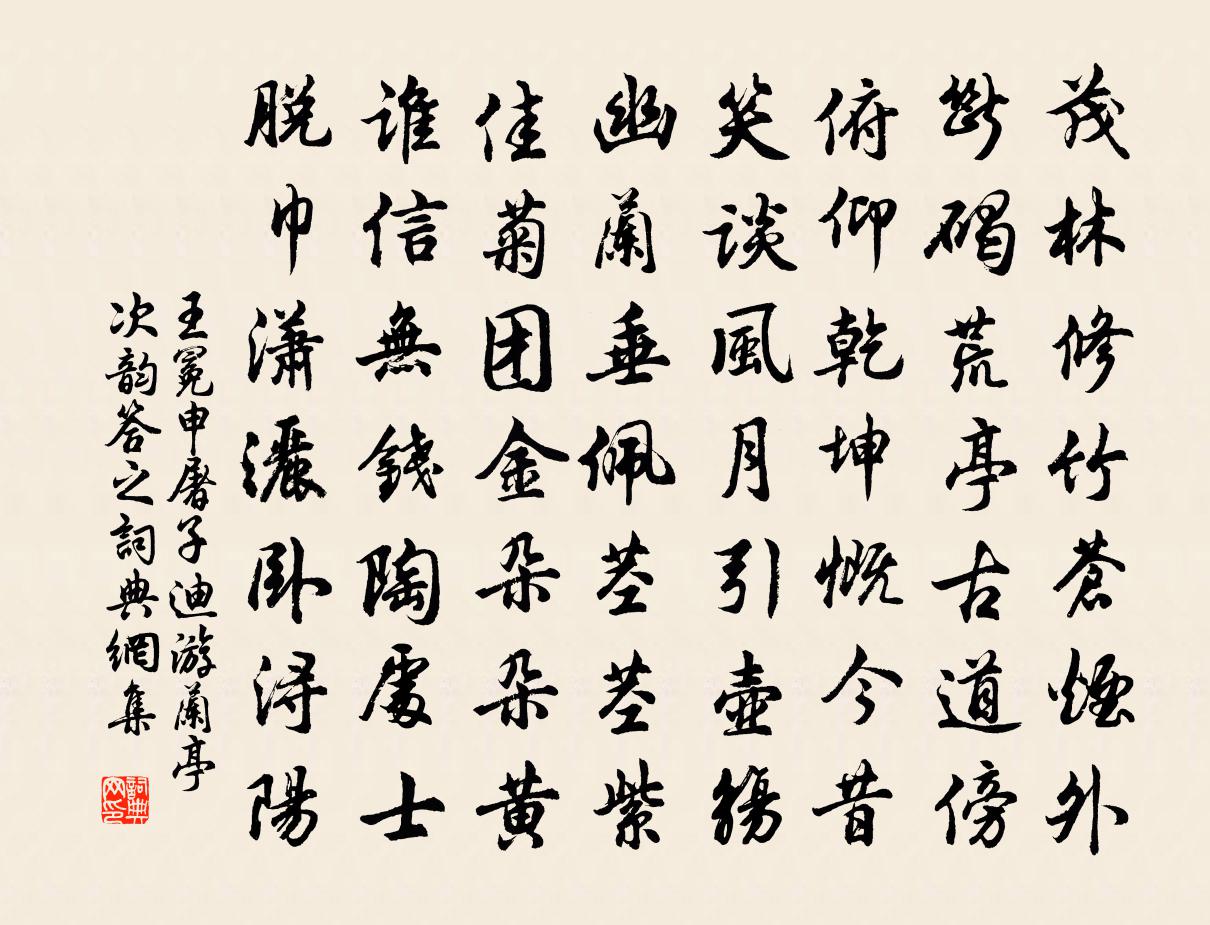 茂林修竹蒼煙外
斷碣荒亭古道傍
俯仰乾坤慨今昔
笑談風月引壺觴
幽蘭垂佩茎茎紫
佳菊团金朵朵黄
谁信無錢陶處士
脱巾瀟灑卧浔陽
王冕申屠子迪游蘭亭
次韵答之詞典網集
詞典
网印